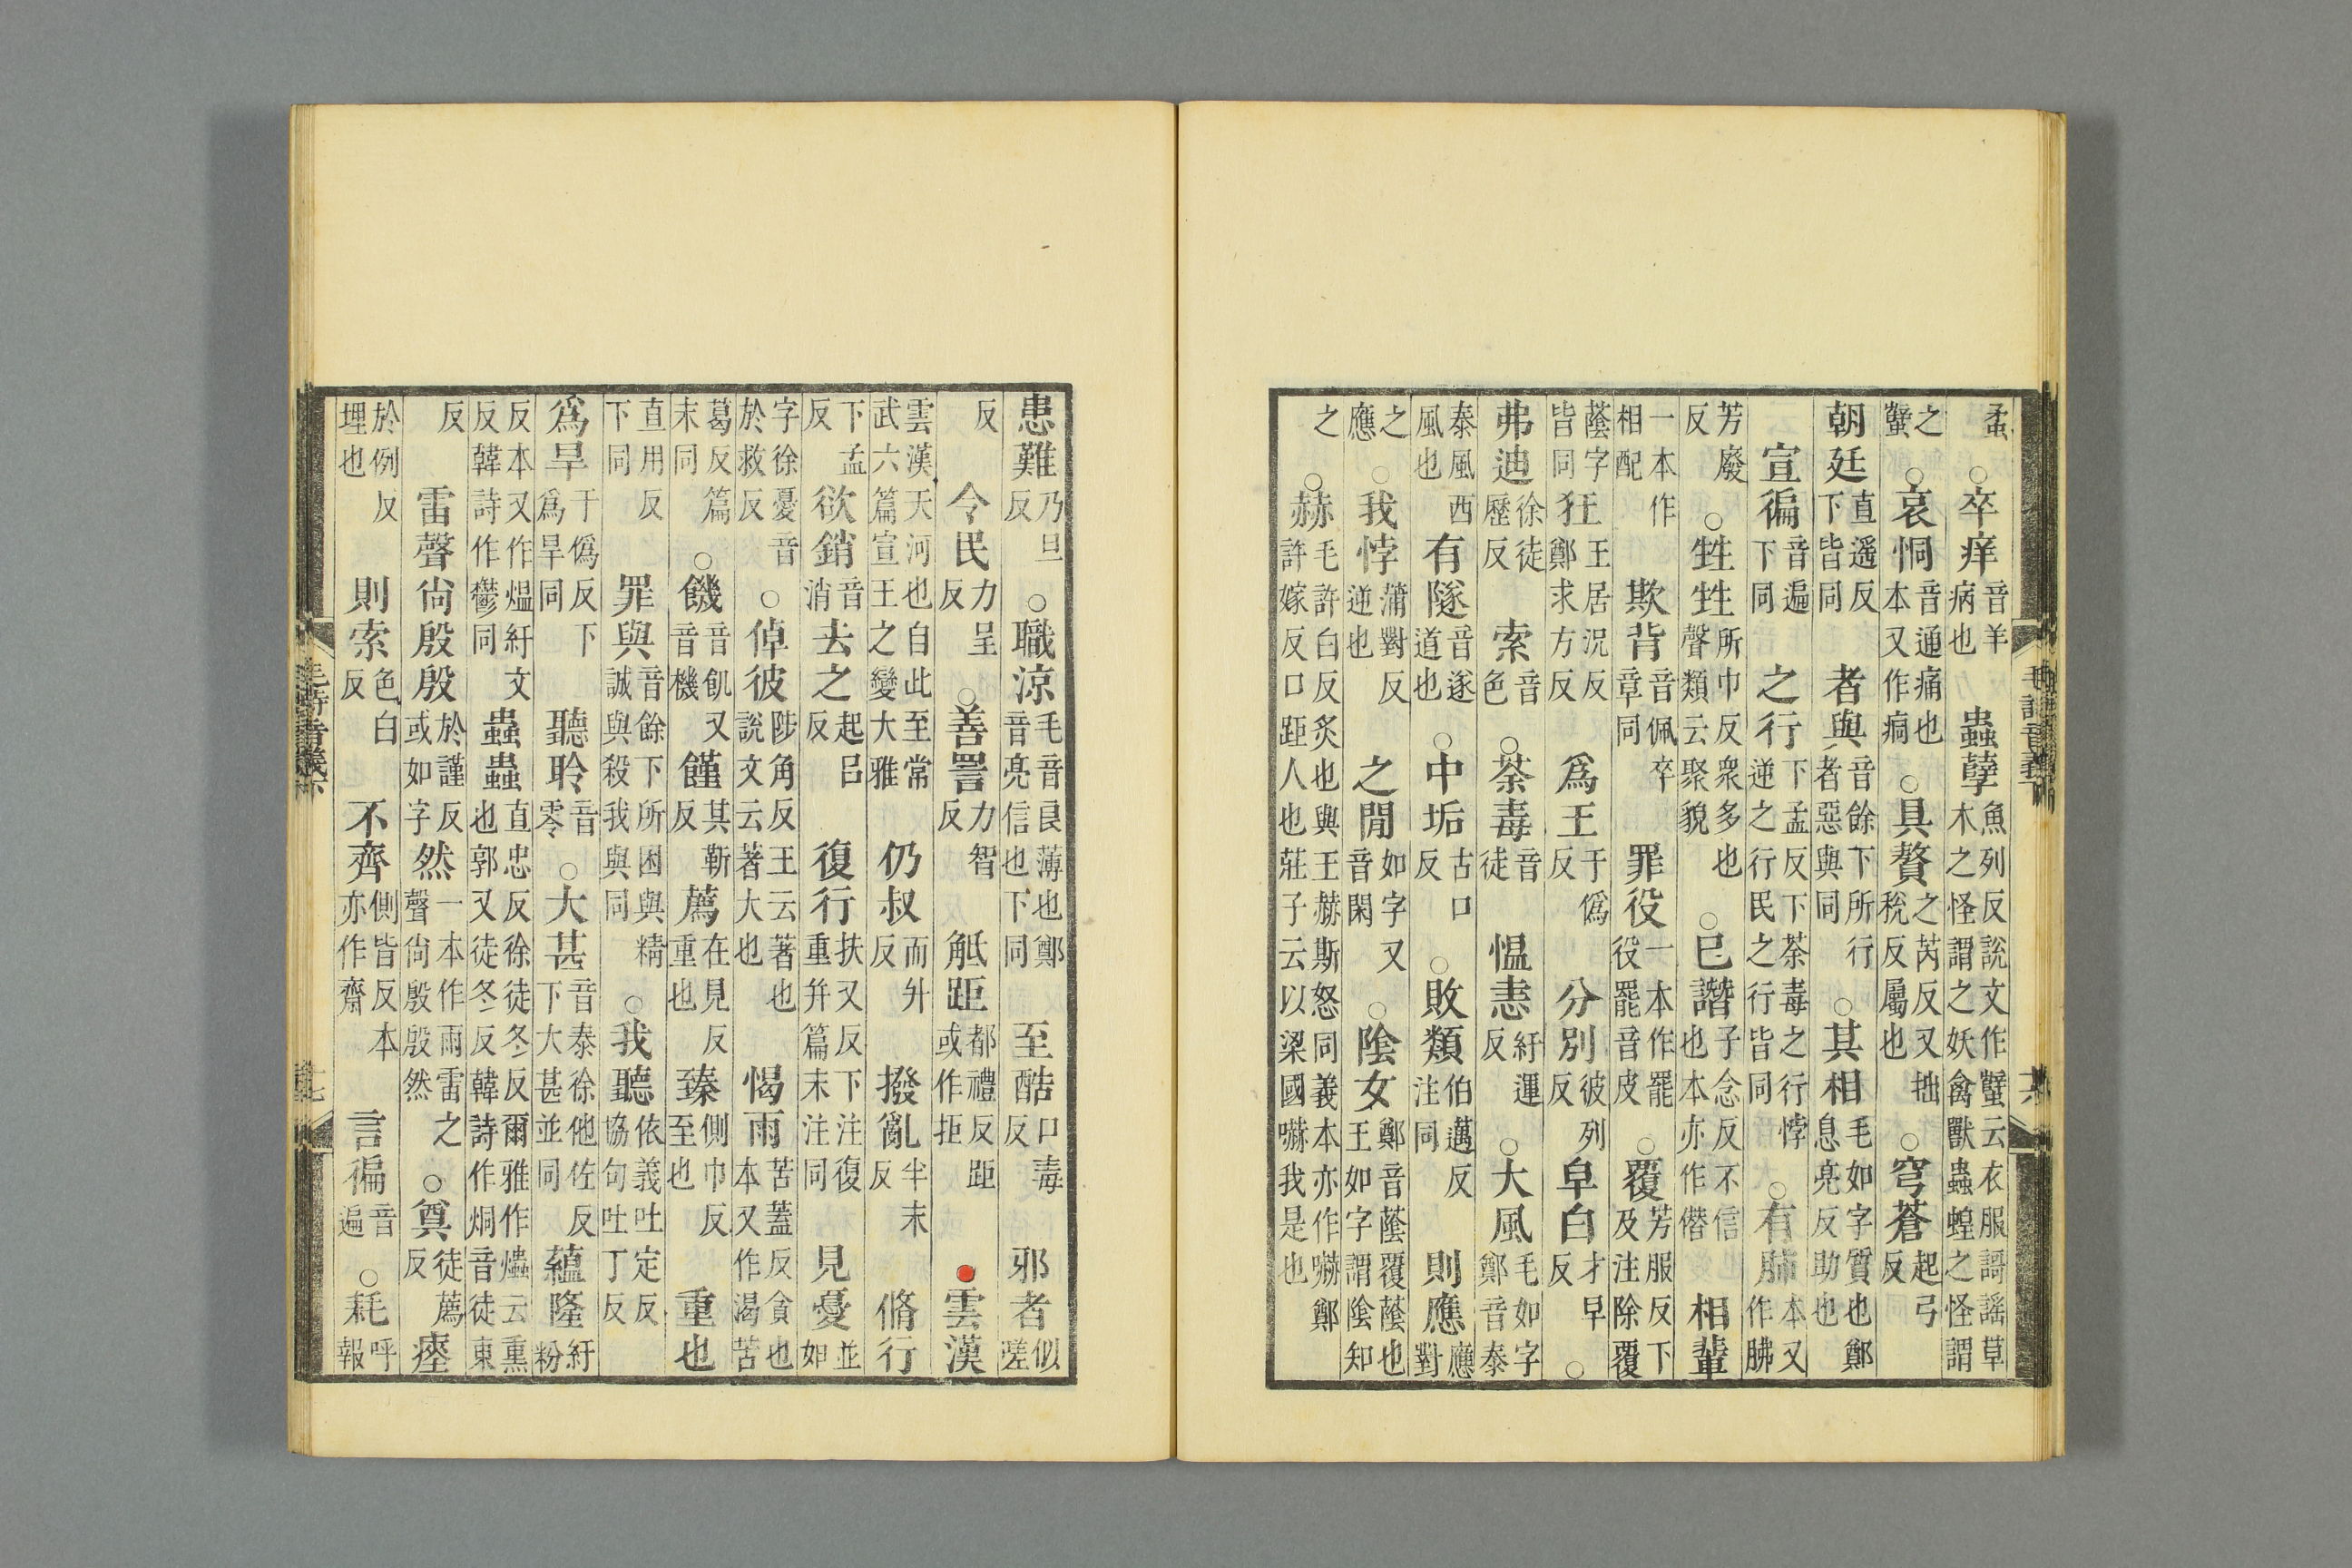 蟊○卒痒音羊病也蟲孽魚列反說文作蠥云衣服謌謠草木之怪謂之妖禽獸蟲蝗之怪謂
之蠥○哀恫音通痛也本又作痌○具贅之芮反又拙稅反屬也○穹蒼起弓反
朝廷直遥反下皆同者與音餘下所行者惡與同○其相毛如字質也鄭息亮反助也
宣徧音遍下同之行下孟反下荼毒之行悖逆之行民之行皆同○有肺本又作胏
芳廢反○甡甡所巾反衆多也聲類云聚貌○已譖子念反不信也本亦作僭相輩
一本作相配欺背音佩卒章同罪役一本作罷役罷音皮○覆芳服反下及注除覆
蔭字皆同狂王居況反鄭求方反爲王于僞反分別彼列反皁白才早反○
弗迪徐徒歷反索音色○荼毒音徒愠恚紆運反○大風毛如字鄭音泰
泰風西風也有隧音遂道也○中垢古口反○敗類伯邁反注同則應應對
之應○我悖蒲對反逆也之閒如字又音閑○陰女鄭音蔭覆蔭也王如字謂陰知
之○赫毛許白反炙也與王赫斯怒同義本亦作嚇鄭許嫁反口距人也莊子云以梁國嚇我是也
毛詩音義下
患難乃旦反○職涼毛音良薄也鄭音亮信也下同至酷口毒反邪者似嗟
反令民力呈反○善詈力智反觝距都禮反距或作拒●雲漢
雲漢天河也自此至常武六篇宣王之變大雅仍叔而升反撥亂半末反脩行
下孟反欲銷音消去之起呂反復行扶又反下注復重幷篇末注同見憂並如
字徐憂音於救反○倬彼陟角反王云著也說文云著大也愒雨苦蓋反貪也本又作渴苦
葛反篇末同○饑音飢又音機饉其靳反薦在見反重也臻側巾反至也重也
直用反下同罪與音餘下所困與精誠與殺我與同○我聽依義吐定反協句吐丁反
爲旱于僞反下爲旱同聽聆音零○大甚音泰徐他佐反下大甚並同蘊隆紆粉
反本又作熅紆文反韓詩作鬱同蟲蟲直忠反徐徒冬反爾雅作爞云熏也郭又徒冬反韓詩作烔音徒東
反雷聲尙殷殷於謹反或如字然一本作雨雷之聲尙殷殷然○奠徒薦反瘞
於例反埋也則索色白反不齊側皆反本亦作齋言徧音遍○耗呼報
毛詩音義下
十七